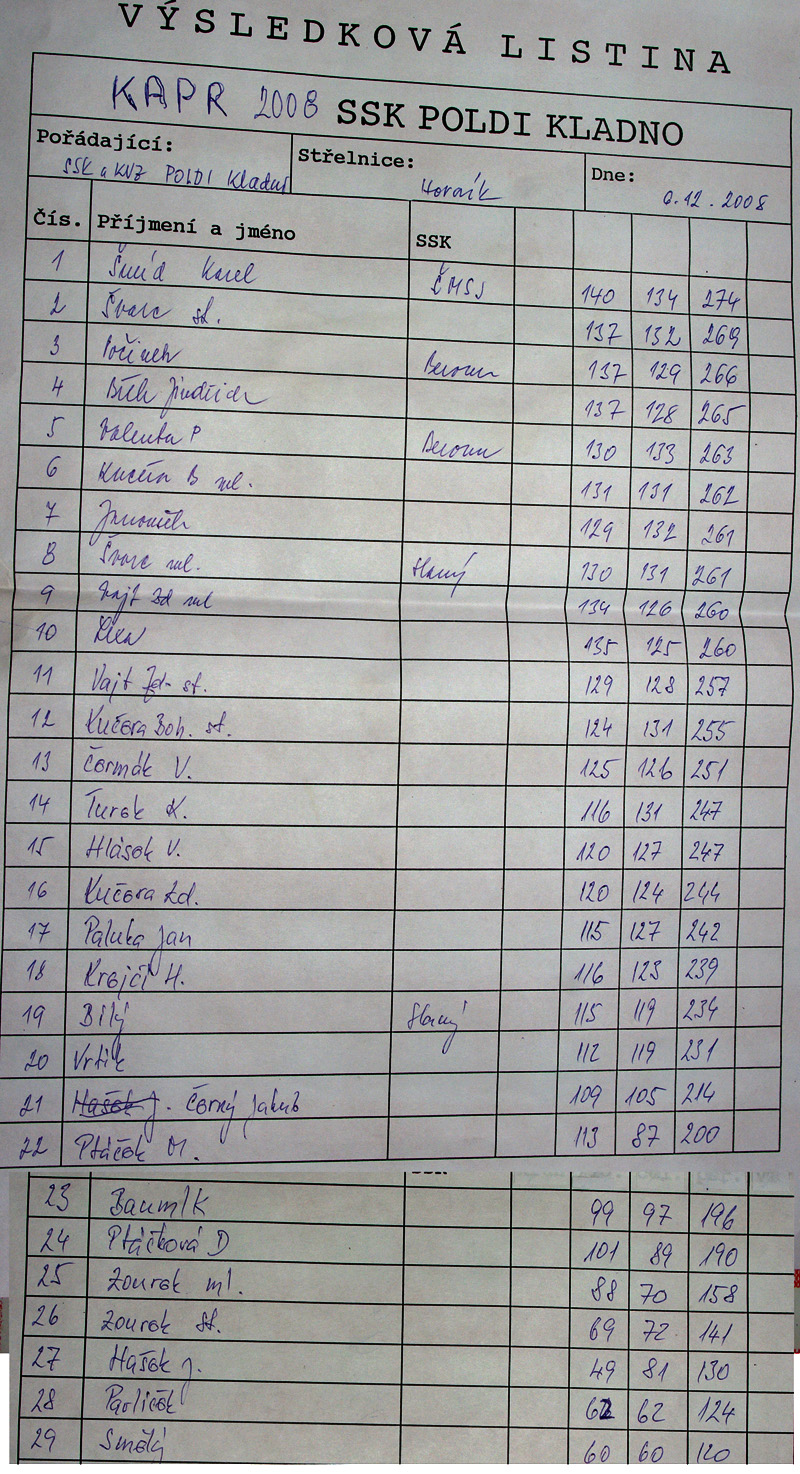 VÝSLEDKOVÁ LISTINA
KAPR 2008 SSK POLDI KLADNO
Pořádající: Střelnice: Dne:
SSK a KVZ POLDI Kladno Horník 6.12.2008
Čís. Příjmení a jméno SSK
1 Šmíd Karel ČMSJ 140 134 274
2 Švarc st. 137 132 269
3 Beroun 137 129 266
4 Jindřich 137 128 265
5 Valenta P Beroun 130 133 263
6 Kučera B ml. 131 131 262
7 129 132 261
8 Švarc ml. Slaný 130 131 261
9 Vajt Zd ml 134 126 260
10 135 125 260
11 Vajt Zd. st. 129 128 257
12 Kučera Boh. st. 124 131 255
13 Čermák V. 125 126 251
14 Turek K. 116 131 247
15 Hlásek V. 120 127 247
16 Kučera Zd. 120 124 244
17 Paluka Jan 115 127 242
18 Krejčí H. 116 123 239
19 Bílý Slaný 115 119 234
20 Vrtik 112 119 231
21 Hašek J. Černý Jakub 109 105 214
22 Ptáček M. 113 87 200
23 Bauml K 99 97 196
24 Ptáčková D 101 89 190
25 Zourek ml. 88 70 158
26 Zourek st. 69 72 141
27 Hašek J. 49 81 130
28 Pavlíček 62 62 124
29 Smělý 60 60 120